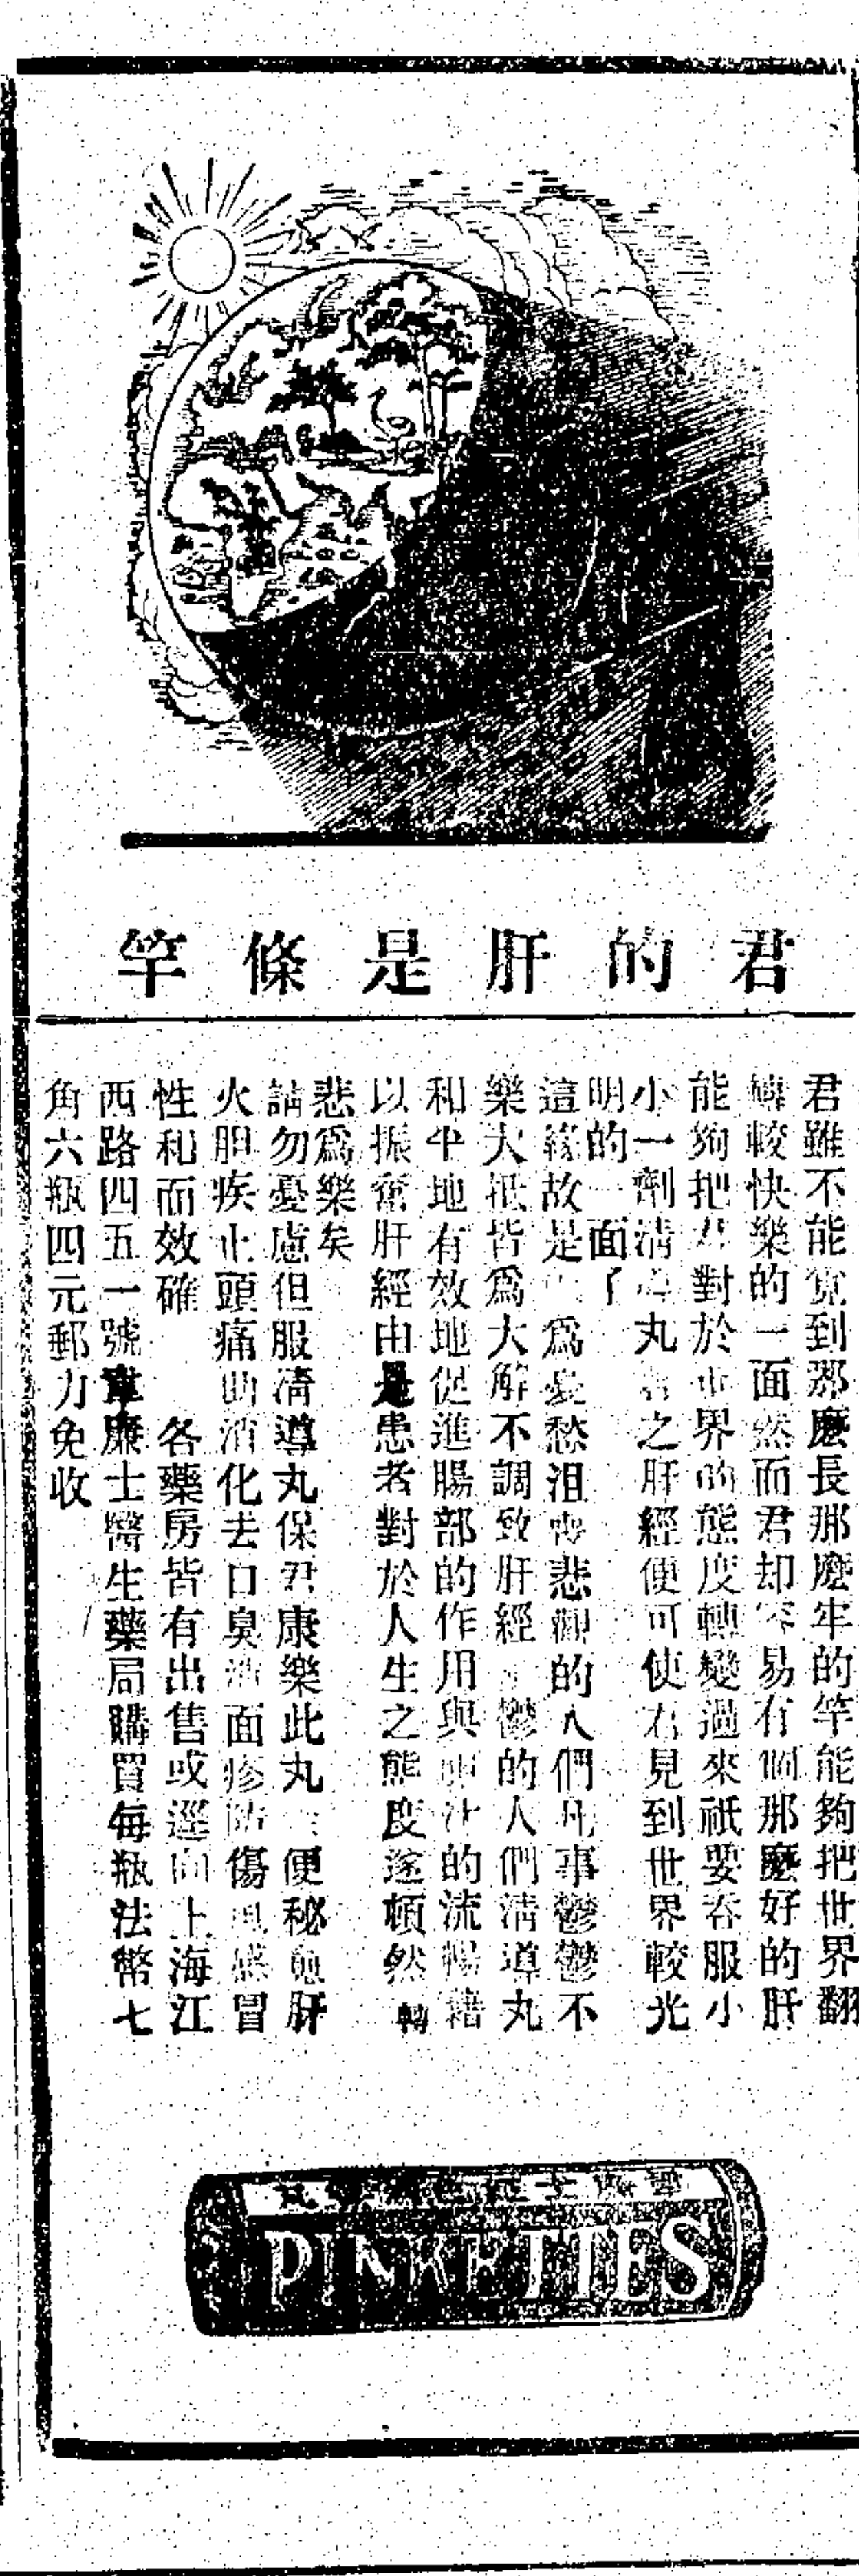 君的肝是條竿
君雖不能寬到那麽長那麽牢的竿能夠把世界翻
轉較快樂的一面然而君却容易有個那麽好的肝
能夠把君對於世界的態度轉變過來祇要吞服小
小一劑清導丸君之肝經便可使君見到世界較光
明的一面了
這緣故是 爲憂愁沮喪悲觀的人們凡事鬱鬱不
樂大抵皆爲大解不調致肝經 鬱的人們清導丸
和平地有效地促進腸部的作用與 汁的流暢藉
以振奮肝經由是患者對於人生之態度遂頓然轉
悲爲樂矣
請勿憂慮但服清導丸保君康樂此丸 便秘 肝
火胆疾止頭痛助消化去口臭 面疹 傷風感冒
性和而效確 各藥房皆有出售或逕向上海江
西路四五一號韋廉士醫生藥局購買每瓶法幣七
角六瓶四元郵力免收
PINKETTES